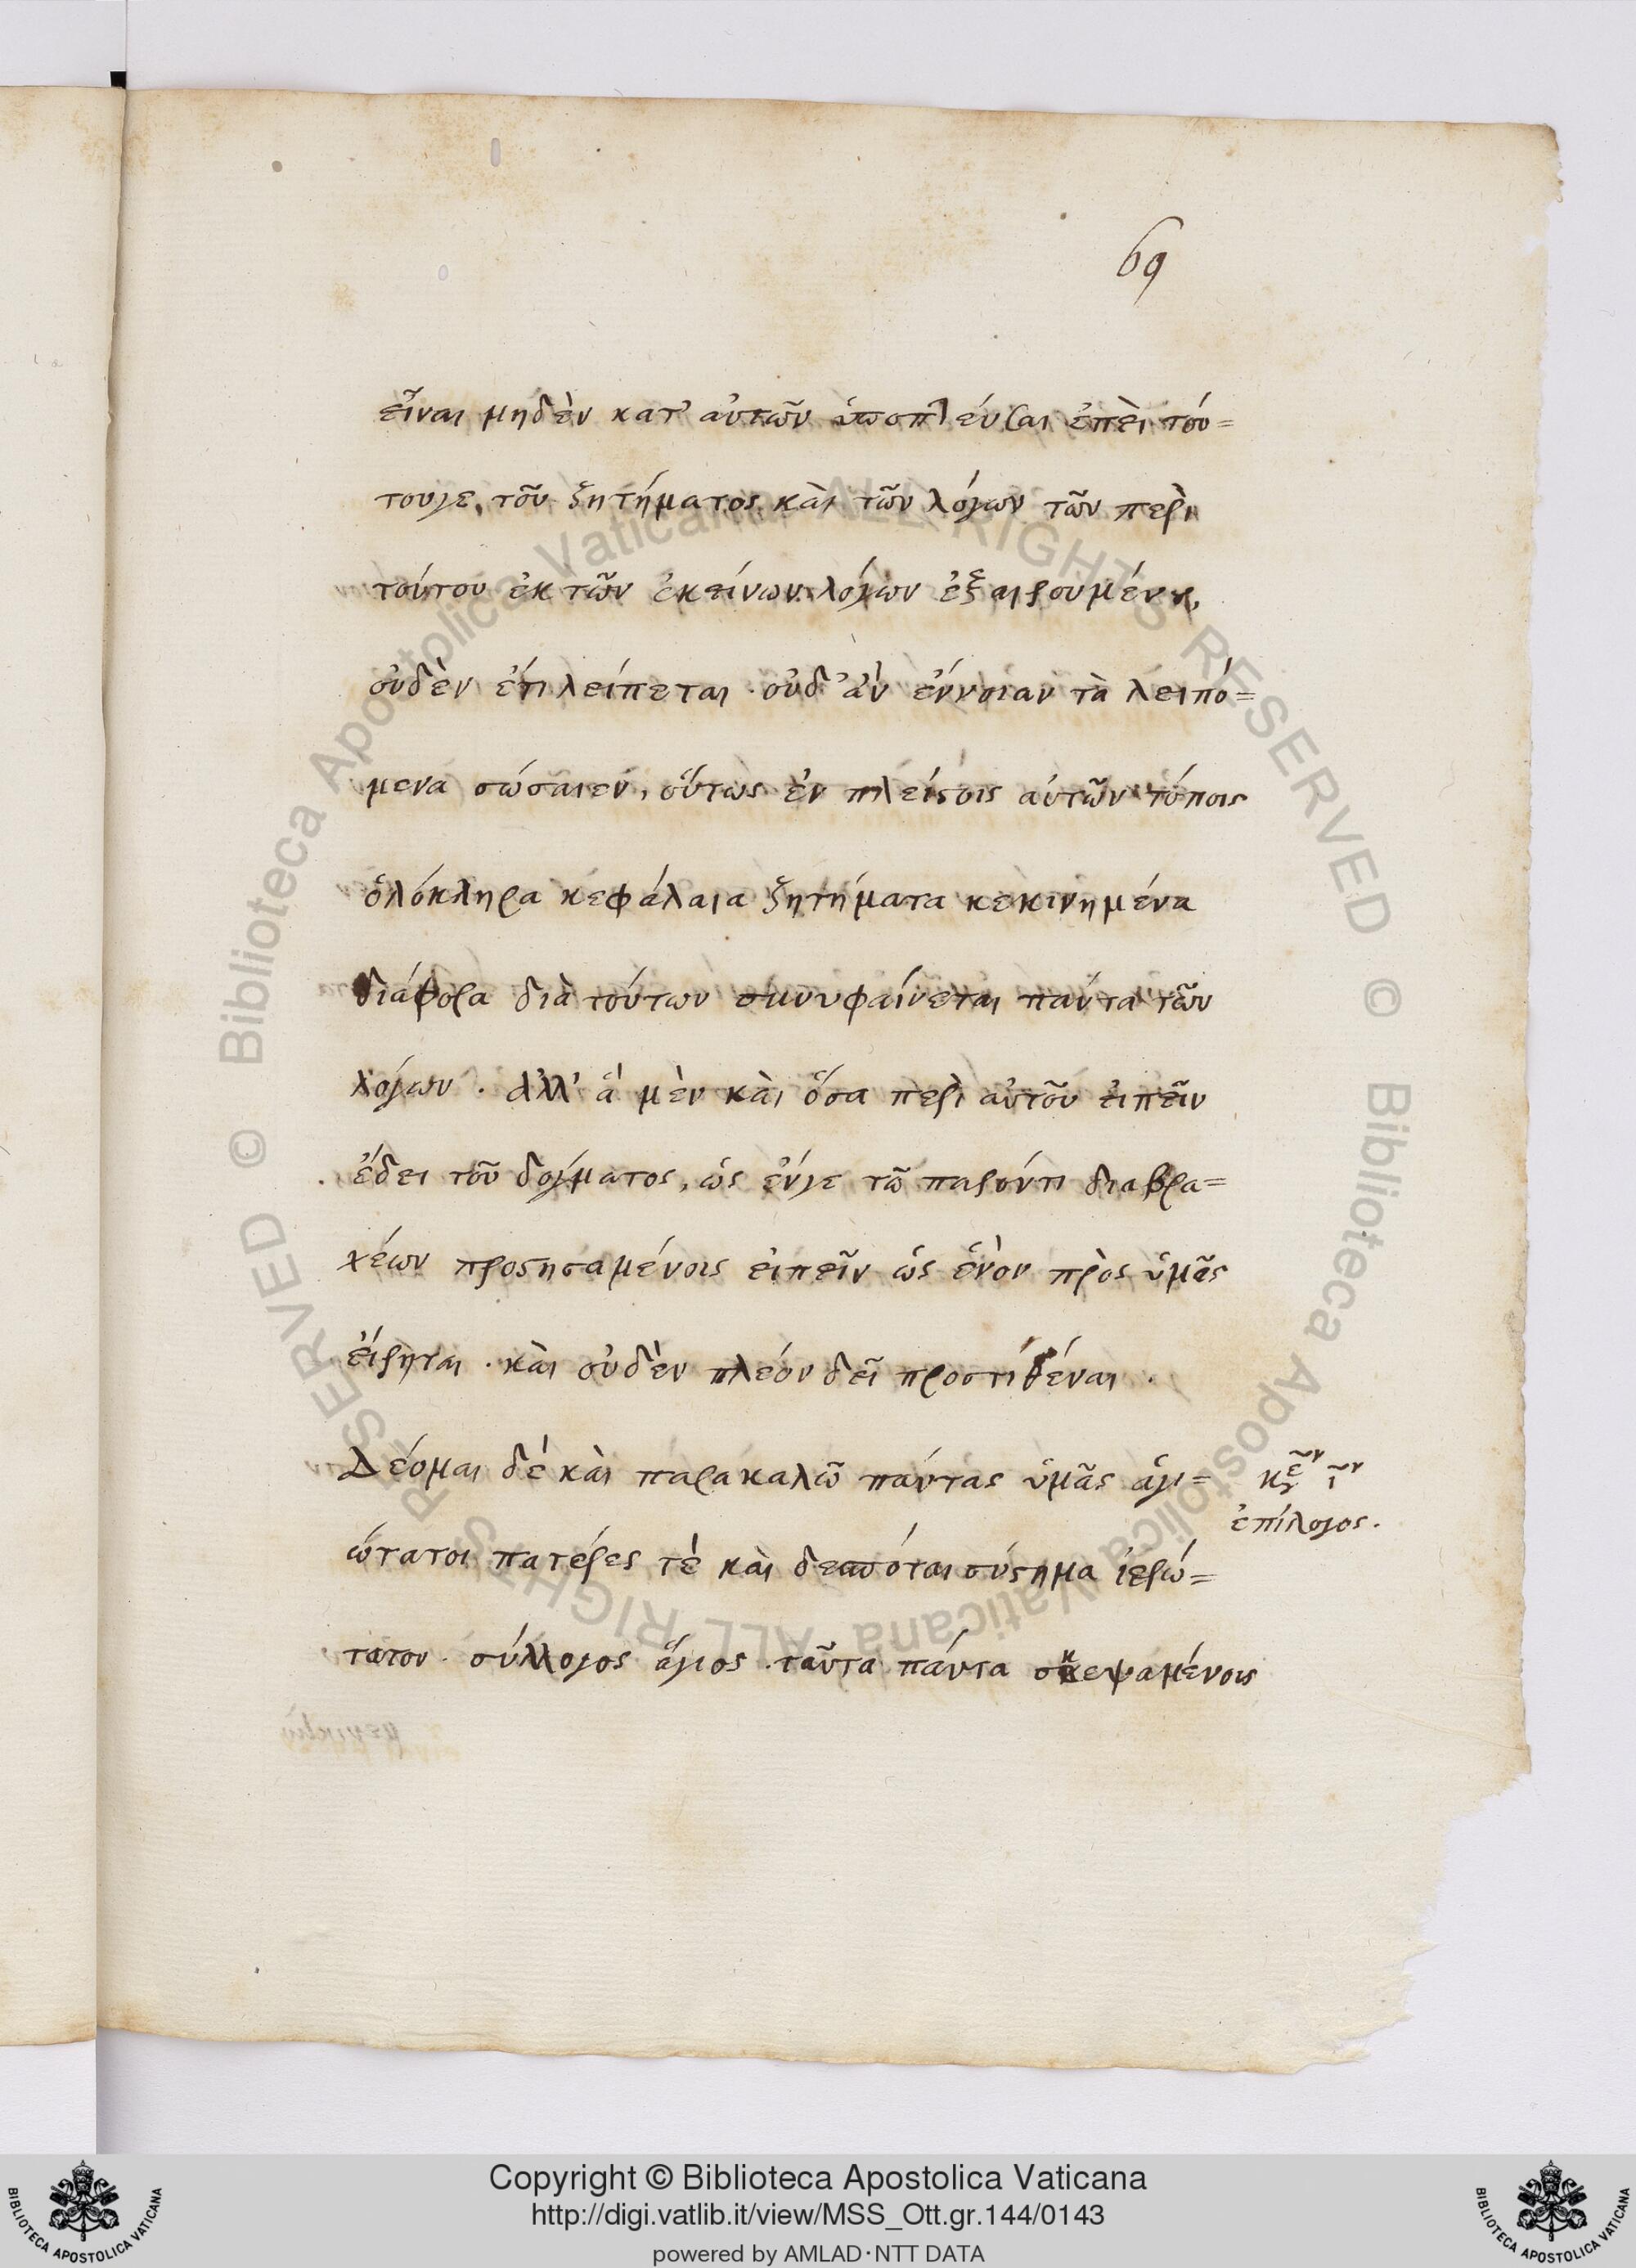 69
εἶναι μηδὲν κατ' αὐτῶν ὑποπλεύσαι ἐπεὶ τού=
τουγε, τοῦ ζητήματος καὶ τῶν λόγων τῶν περὶ
τούτου ἐκ τῶν ἐκείνων λόγων ἐξαιρουμένου,
οὐδὲν ἔτι λείπεται. οὐδ' ἂν ἔννοιαν τὰ λειπό=
μενα σώσαιεν, οὕτως ἐν πλείστοις αὐτῶν τόποις
ὁλόκληρα κεφάλαια ζητήματα κεκινημένα
διάφορα διὰ τούτων συνυφαίνεται πάντα τῶν
λόγων. ἀλλ' ἃ μὲν καὶ ὅσα περὶ αὐτοῦ εἰπεῖν
ἔδει τοῦ δόγματος, ὡς ἔνγε τῶ παρόντι διαβρα=
χέων προστησαμένοις εἰπεῖν ὡς ἐνὸν πρὸς ὑμᾶς
εἴρηται. καὶ οὐδὲν πλέον δεῖ προστιθέναι.
Δέομαι δέ καὶ παρακαλῶ πάντας ὑμᾶς ἁγι=
ώτατοι πατέρες τέ καὶ δεσπόται σύστημα ἱερώ=
τατον. σύλλογος ἅγιος. ταῦτα πάντα σκεψαμένοις
ἐπίλογος.
© Biblioteca Apostolica Vaticana ALL RIGHTS RESERVED © Biblioteca Apostolica Vaticana ALL RIGHTS RESERVED
Copyright © Biblioteca Apostolica Vaticana
http://digi.vatlib.it/view/MSS_Ott.gr.144/0143
powered by AMLAD·NTT DATA
BIBLIOTECA APOSTOLICA VATICANA
BIBLIOTECA APOSTOLICA VATICANA